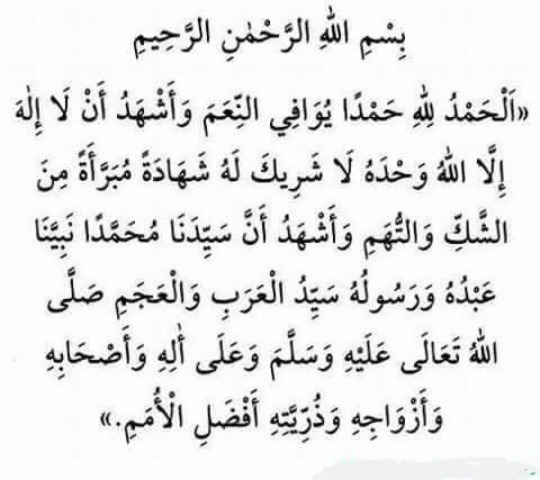 بِسْمِ اللهِ الرَّحْمٰنِ الرَّحِيمِ
«اَلْحَمْدُ لِلهِ حَمْدًا يُوَافِي النِّعَمَ وَأَشْهَدُ أَنْ لَا إِلٰهَ
إِلَّا اللهُ وَحْدَهُ لَا شَرِيكَ لَهُ شَهَادَةً مُبَرَّأَةً مِنَ
الشَّكِّ وَالتُّهَمِ وَأَشْهَدُ أَنَّ سَيِّدَنَا مُحَمَّدًا نَبِيَّنَا
عَبْدُهُ وَرَسُولُهُ سَيِّدُ الْعَرَبِ وَالْعَجَمِ صَلَّى
اللهُ تَعَالَى عَلَيْهِ وَسَلَّمَ وَعَلَى أٰلِهِ وَأَصْحَابِهِ
وَأَزْوَاجِهِ وَذُرِّيَّتِهِ أَفْضَلِ الْأُمَمِ.»